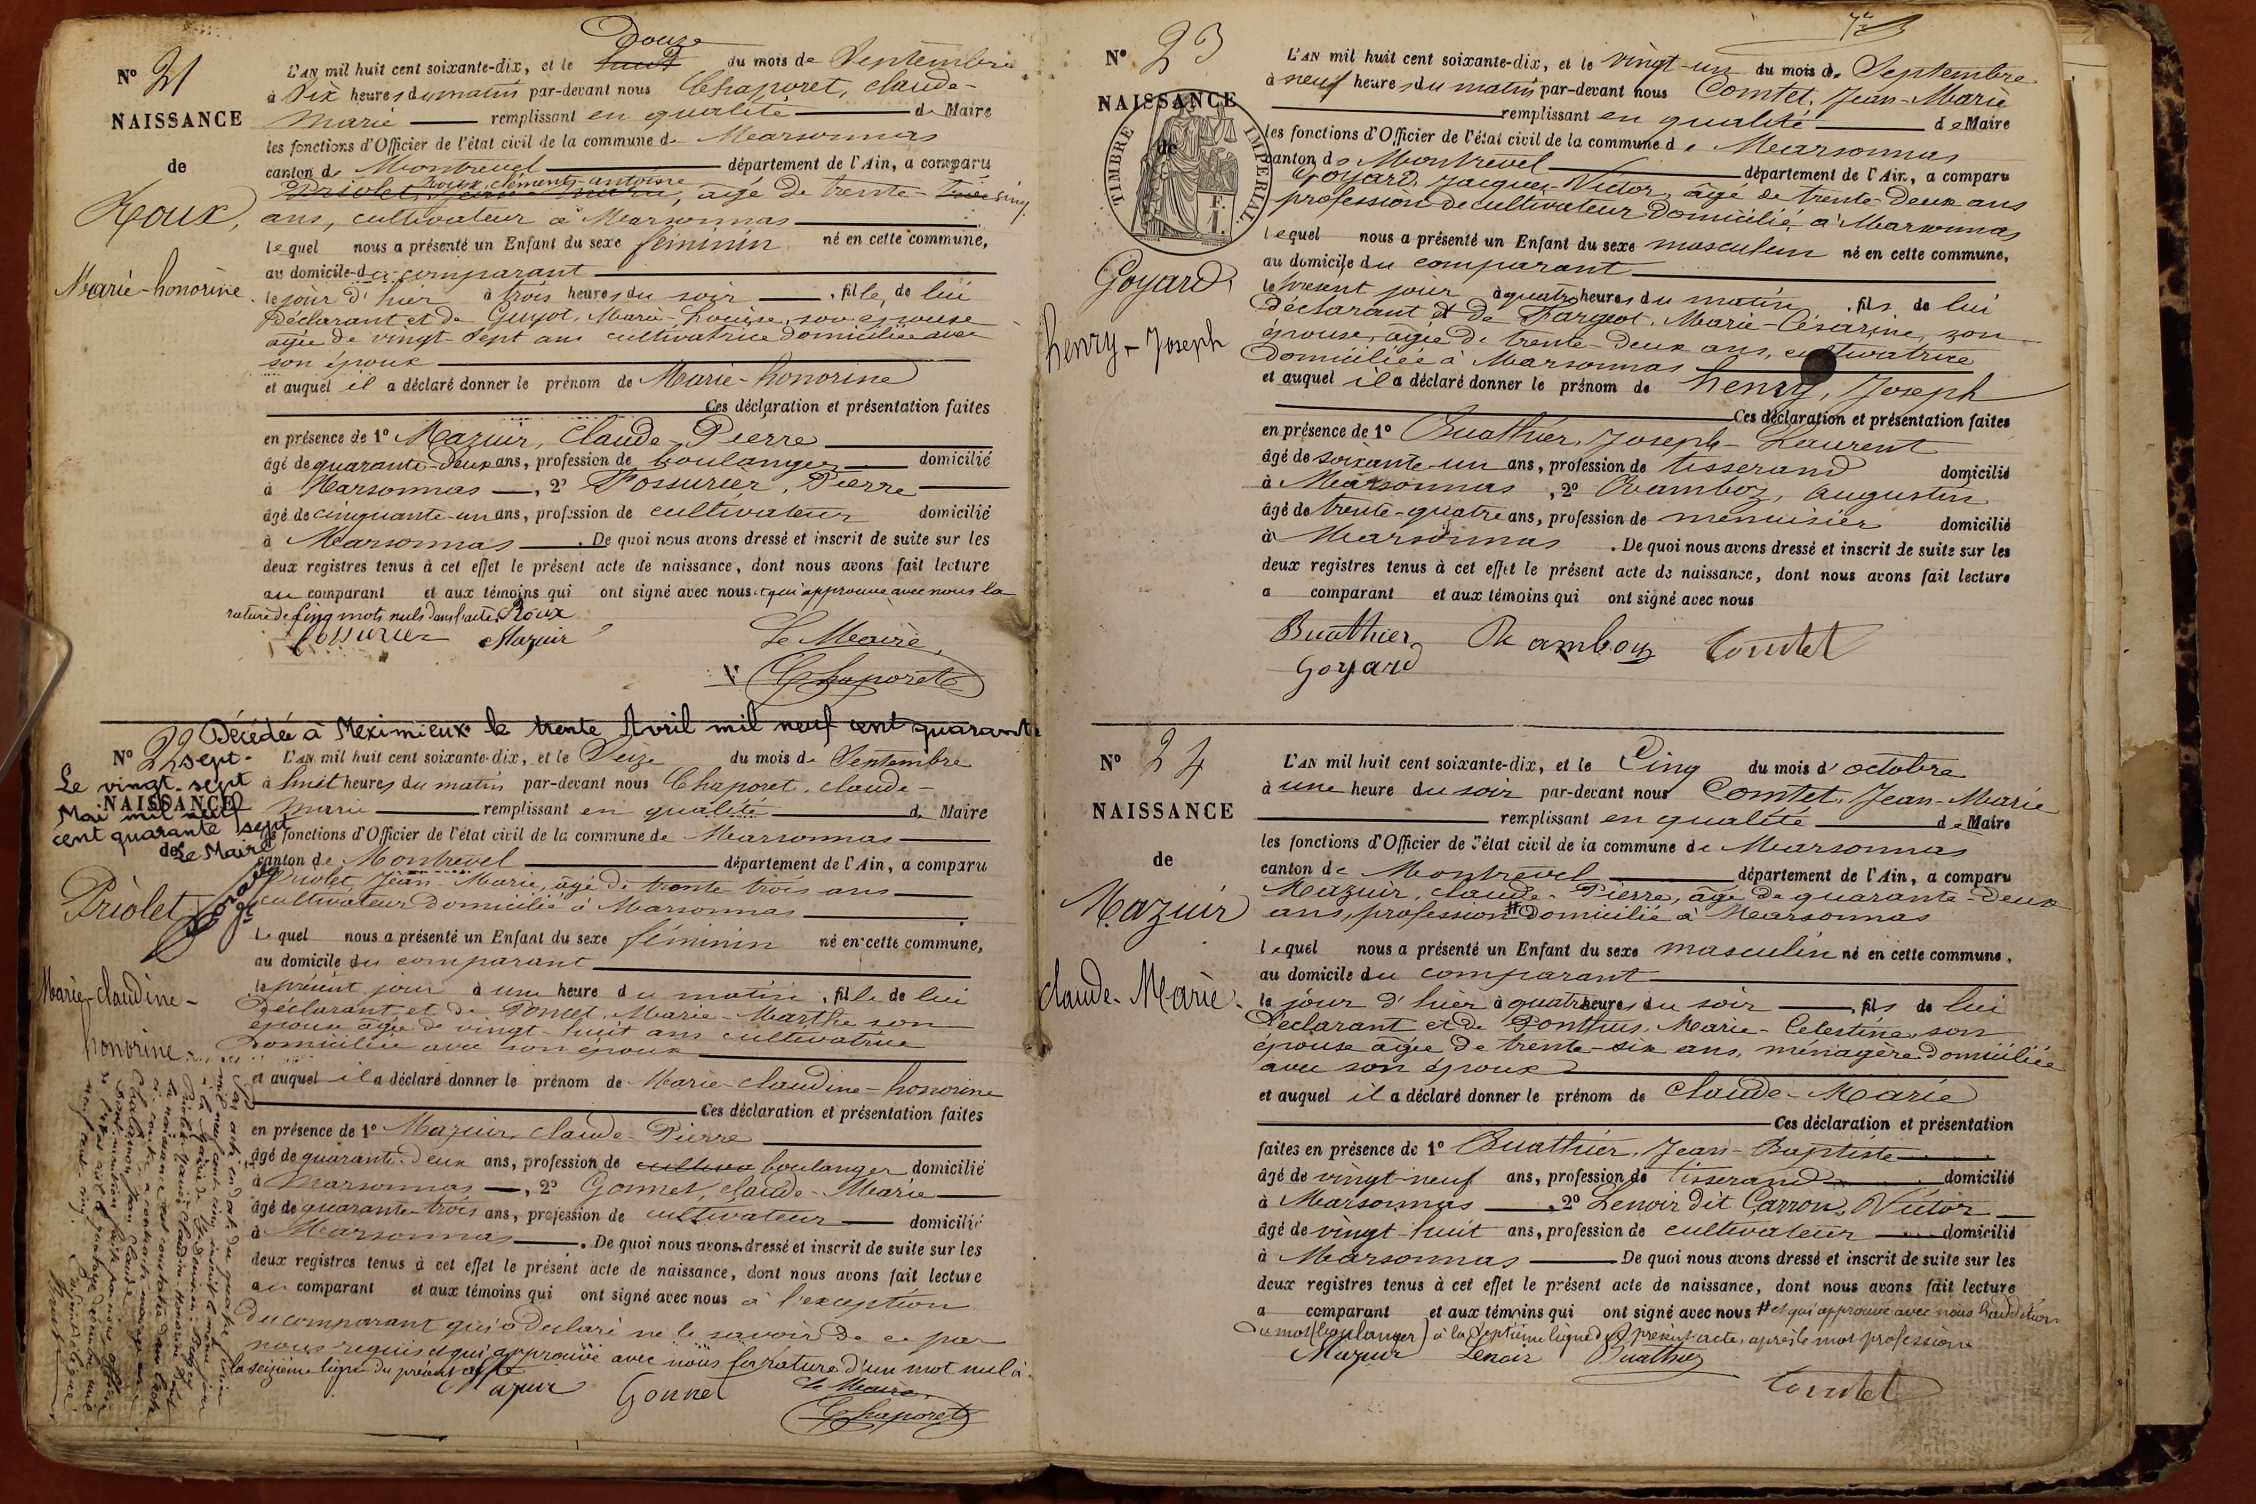 N° 21
NAISSANCE
de
Roux,
Marie-honorine
Douze
L'AN mil huit cent soixante-dix, et le huit du mois de Septembre
à Dix heures du matin par-devant nous Chaporet, claude-
Marie remplissant en qualité de Maire
les fonctions d'Officier de l'état civil de la commune de Marsonnas
canton de Montrevel département de l'Ain, a comparu
Roux, cléments-antoine
Priolet, Jean Marie, agé de trente-trois cinq
ans, cultivateur à Marsonnas
lequel nous a présenté un Enfant du sexe féminin né en cette commune,
au domicile du comparant
le jour d'hier à trois heures du soir, fille de lui
Déclarant et de Guyot, Marie-Louise, son epouse
agée de vingt-sept ans cultivatrice domiciliée avec
son époux
et auquel il a déclaré donner le prénom de Marie-honorine
Ces déclaration et présentation faites
en présence de 1° Mazuir, Claude-Pierre
âgé de quarante-deux ans, profession de boulanger domicilié
à Marsonnas, 2° Possurier, Pierre
âgé de cinquante-un ans, profession de cultivateur domicilié
à Marsonnas. De quoi nous avons dressé et inscrit de suite sur les
deux registres tenus à cet effet le présent acte de naissance, dont nous avons fait lecture
au comparant et aux témoins qui ont signé avec nous et qui approuve avec nous la
rature de cinq mots nuls dans l'acte. Roux
Possurier Mazuir Le Maire,
Chaporet
Décédée à Meximieux le trente Avril mil neuf cent quarante
sept.
Le vingt-sept
Mai mil neuf
cent quarante sept
Le Maire
N° 22
NAISSANCE
de
Priolet
Marie-claudine-
honorine
L'AN mil huit cent soixante-dix, et le Seize du mois de Septembre
à huit heures du matin par-devant nous Chaporet, claude-
Marie remplissant en qualité de Maire
les fonctions d'Officier de l'état civil de la commune de Marsonnas
canton de Montrevel département de l'Ain, a comparu
Priolet, Jean-Marie, âgé de trente trois ans
cultivateur domicilié à Marsonnas
lequel nous a présenté un Enfant du sexe féminin né en cette commune,
au domicile du comparant
le présent jour à une heure du matin, fille de lui
Déclarant et de Poncet, Marie-Marthe son
epouse agée de vingt-huit ans cultivatrice
Domiciliée avec son époux
et auquel il a déclaré donner le prénom de Marie-claudine-honorine
Ces déclaration et présentation faites
en présence de 1° Mazuir, Claude-Pierre
âgé de quarante-deux ans, profession de boulanger domicilié
à Marsonnas, 2° Gonnet, claude-Marie
âgé de quarante-trois ans, profession de cultivateur domicilié
à Marsonnas. De quoi nous avons dressé et inscrit de suite sur les
deux registres tenus à cet effet le présent acte de naissance, dont nous avons fait lecture
au comparant et aux témoins qui ont signé avec nous à l'exception
du comparant qui a déclaré ne le savoir de ce par
nous requis et qui approuve avec nous la rature d'un mot nul à
la seizième ligne du présent acte
Mazuir Gonnet Le Maire,
Chaporet
N° 23
NAISSANCE
de
TIMBRE IMPERIAL
Goyard
henry-Joseph
L'AN mil huit cent soixante-dix, et le vingt-un du mois de Septembre
à neuf heures du matin par-devant nous Comtet, Jean-Marie
remplissant en qualité de Maire
les fonctions d'Officier de l'état civil de la commune de Marsonnas
canton de Montrevel département de l'Ain, a comparu
Goyard, Jacques-Victor, âgé de trente-deux ans
profession de cultivateur domicilié à Marsonnas
lequel nous a présenté un Enfant du sexe masculin né en cette commune,
au domicile du comparant
le présent jour à quatre heures du matin, fils de lui
Déclarant et de Fargeot, Marie-Césarine, son
epouse, agée de trente-deux ans, cultivatrice
Domiciliée à Marsonnas
et auquel il a déclaré donner le prénom de henry, Joseph
Ces déclaration et présentation faites
en présence de 1° Buathier, Joseph-Laurent
âgé de soixante-un ans, profession de tisserand domicilié
à Marsonnas, 2° Chamboz, augustin
âgé de trente-quatre ans, profession de menuisier domicilié
à Marsonnas. De quoi nous avons dressé et inscrit de suite sur les
deux registres tenus à cet effet le présent acte de naissance, dont nous avons fait lecture
a comparant et aux témoins qui ont signé avec nous
Buathier Comtet
Goyard
N° 24
NAISSANCE
de
Mazuir
claude-Marie
L'AN mil huit cent soixante-dix, et le Cinq du mois d'octobre
à une heure du soir par-devant nous Comtet, Jean-Marie
remplissant en qualité de Maire
les fonctions d'Officier de l'état civil de la commune de Marsonnas
canton de Montrevel département de l'Ain, a comparu
Mazuir, claude-Pierre, âgé de quarante-deux
ans, profession # domicilié à Marsonnas
lequel nous a présenté un Enfant du sexe masculin né en cette commune,
au domicile du comparant
le jour d'hier à quatre heures du soir, fils de lui
Déclarant et de Ponthus, Marie-Celestine, son
epouse âgée de trente-six ans, ménagère domiciliée
avec son époux
et auquel il a déclaré donner le prénom de claude-Marie
Ces déclaration et présentation
faites en présence de 1° Buathier, Jean-Baptiste
âgé de vingt-neuf ans, profession de tisserand domicilié
à Marsonnas, 2° Lenoir dit Carron, Victor
âgé de vingt-huit ans, profession de cultivateur domicilié
à Marsonnas De quoi nous avons dressé et inscrit de suite sur les
deux registres tenus à cet effet le présent acte de naissance, dont nous avons fait lecture
a comparant et aux témoins qui ont signé avec nous # et qui approuve avec nous l'addition
du mot (boulanger) à la septième ligne du présent acte, après le mot profession
Mazuir Lenoir Buathier
Comtet